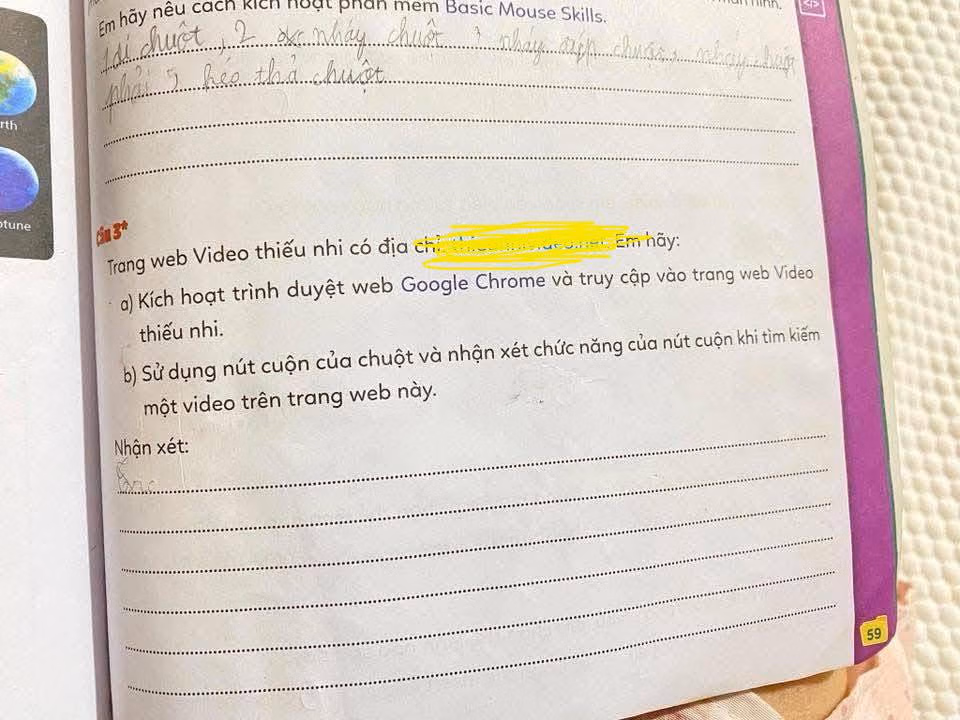 Em hãy nêu cách kích hoạt phần mềm Basic Mouse Skills.
1 di chuột, 2 nháy chuột 3 nháy đúp chuột, nháy chuột
phải 5 kéo thả chuột
rth
ptune
Câu 3*
Trang web Video thiếu nhi có địa chỉ: Em hãy:
a) Kích hoạt trình duyệt web Google Chrome và truy cập vào trang web Video
thiếu nhi.
b) Sử dụng nút cuộn của chuột và nhận xét chức năng của nút cuộn khi tìm kiếm
một video trên trang web này.
Nhận xét:
59